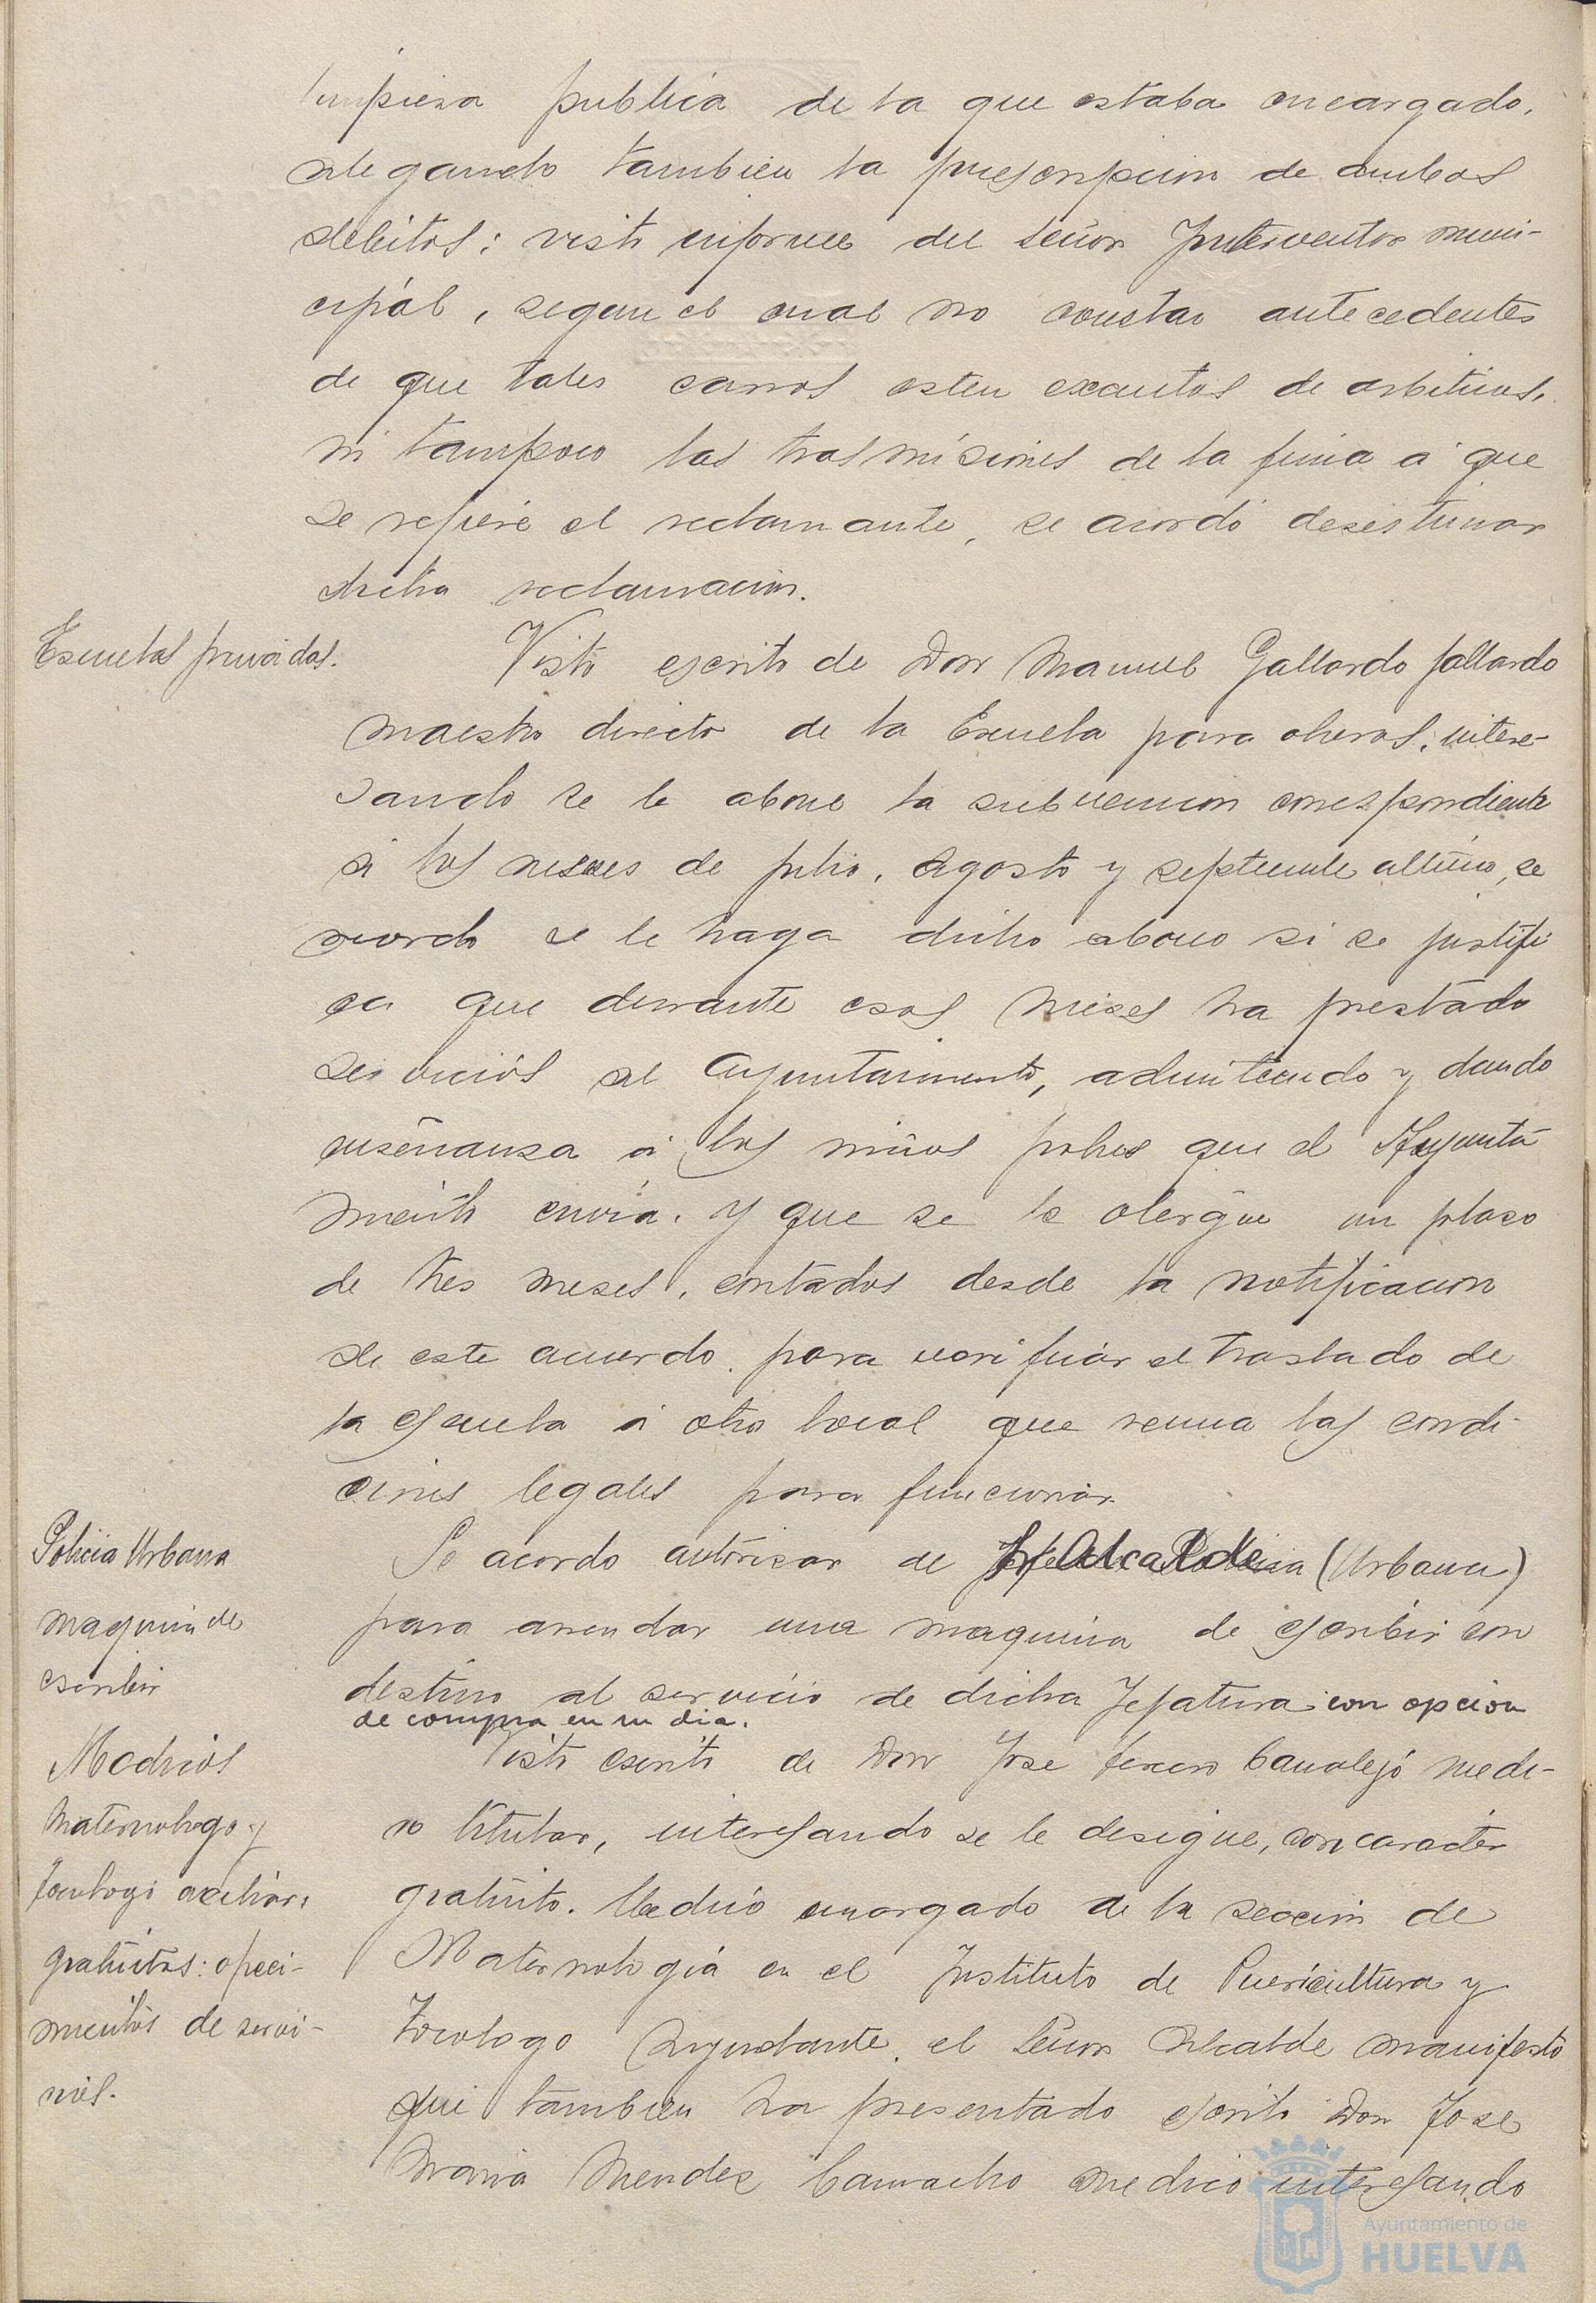 limpieza publica de la que estaba encargado,
alegando tambien la prescripcion de ambos
debitos; visto informe del Señor Interventor muni-
cipal, segun el cual no constan antecedentes
de que tales carros esten exentos de arbitrios,
ni tampoco las trasmisiones de la finca á que
se refiere el reclamante, se acordó desestimar
dicha reclamacion.
Escuelas privadas.
Visto escrito de Don Manuel Gallardo Gallardo
maestro director de la Escuela para obreros, intere-
sando se le abone la subvencion correspondiente
á los meses de Julio, Agosto y septiembre ultimo, se
acordo se le haga dicho abono si se justifi
ca que durante esos meses ha prestado
servicios al Ayuntamiento, admitiendo y dando
enseñanza á los niños pobres que el Ayunta
miento envia, y que se le otorgue un plazo
de tres meses, contados desde la notificacion
de este acuerdo, para verificar el traslado de
la escuela á otro local que reuna las condi-
ciones legales para funcionar.
Policia Urbana
maquina de
escribir
Se acordo autorizar de Sr Alcalde (Urbana)
para arrendar una maquina de escribir con
destino al servicio de dicha Jefatura con opcion
de compra en su dia.
Medicos
Maternologo y
Tocologo auxiliar,
gratuitos: ofreci-
mientos de servi-
cios.
Visto escrito de Don Jose Tercero Canalejo medi-
co titular, interesando se le designe, con caracter
gratuito, Medico encargado de la seccion de
Maternologia en el Instituto de Puericultura y
Tocologo Ayudante, el Señor Alcalde manifestó
que tambien ha presentado escrito Don Jose
Maria Mendez Camacho medico interesando
Ayuntamiento de
HUELVA